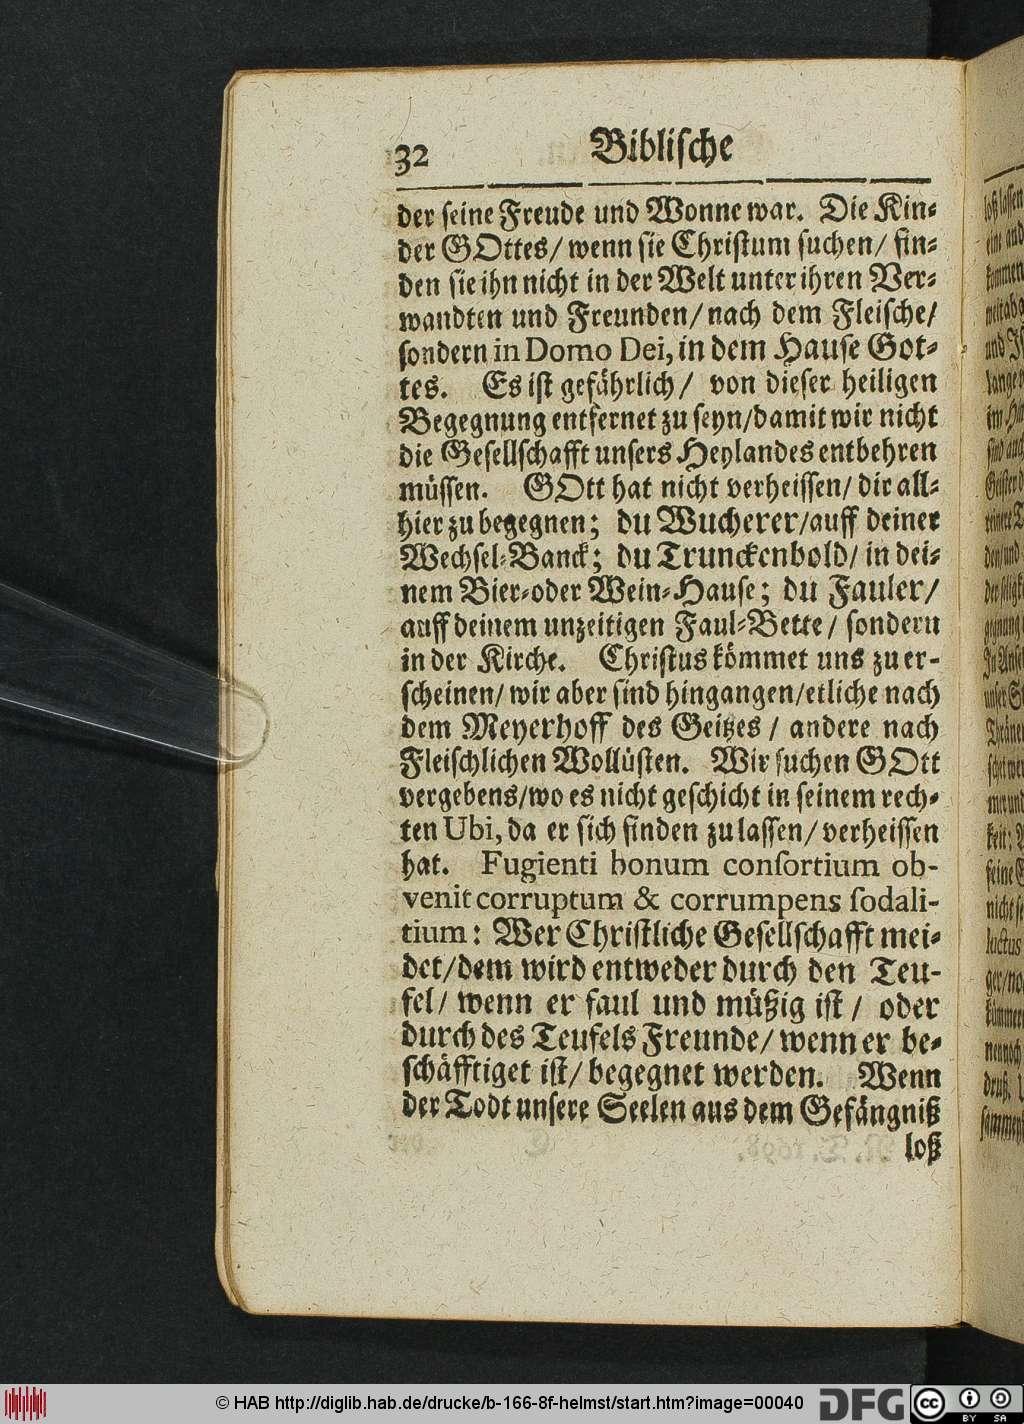 32 Biblische
der seine Freude und Wonne war. Die Kin-
der GOttes/ wenn sie Christum suchen/ fin-
den sie ihn nicht in der Welt unter ihren Ver-
wandten und Freunden/ nach dem Fleische/
sondern in Domo Dei, in dem Hause Got-
tes. Es ist gefährlich/ von dieser heiligen
Begegnung entfernet zu seyn/ damit wir nicht
die Gesellschafft unsers Heylandes entbehren
müssen. GOtt hat nicht verheissen/ dir all-
hier zu begegnen; du Wucherer/ auff deiner
Wechsel-Banck; du Trunckenbold/ in dei-
nem Bier-oder Wein-Hause; du Fauler/
auff deinem unzeitigen Faul-Bette/ sondern
in der Kirche. Christus kömmet uns zu er-
scheinen/ wir aber sind hingangen/ etliche nach
dem Meyerhoff des Geitzes/ andere nach
Fleischlichen Wollüsten. Wir suchen GOtt
vergebens/ wo es nicht geschicht in seinem rech-
ten Ubi, da er sich finden zu lassen/ verheissen
hat. Fugienti bonum consortium ob-
venit corruptum & corrumpens sodali-
tium: Wer Christliche Gesellschafft mei-
det/ dem wird entweder durch den Teu-
fel/ wenn er faul und müßig ist/ oder
durch des Teufels Freunde/ wenn er be-
schäfftiget ist/ begegnet werden. Wenn
der Todt unsere Seelen aus dem Gefängniß
loß
© HAB http://diglib.hab.de/drucke/b-166-8f-helmst/start.htm?image=00040
DFG
cc
BY SA